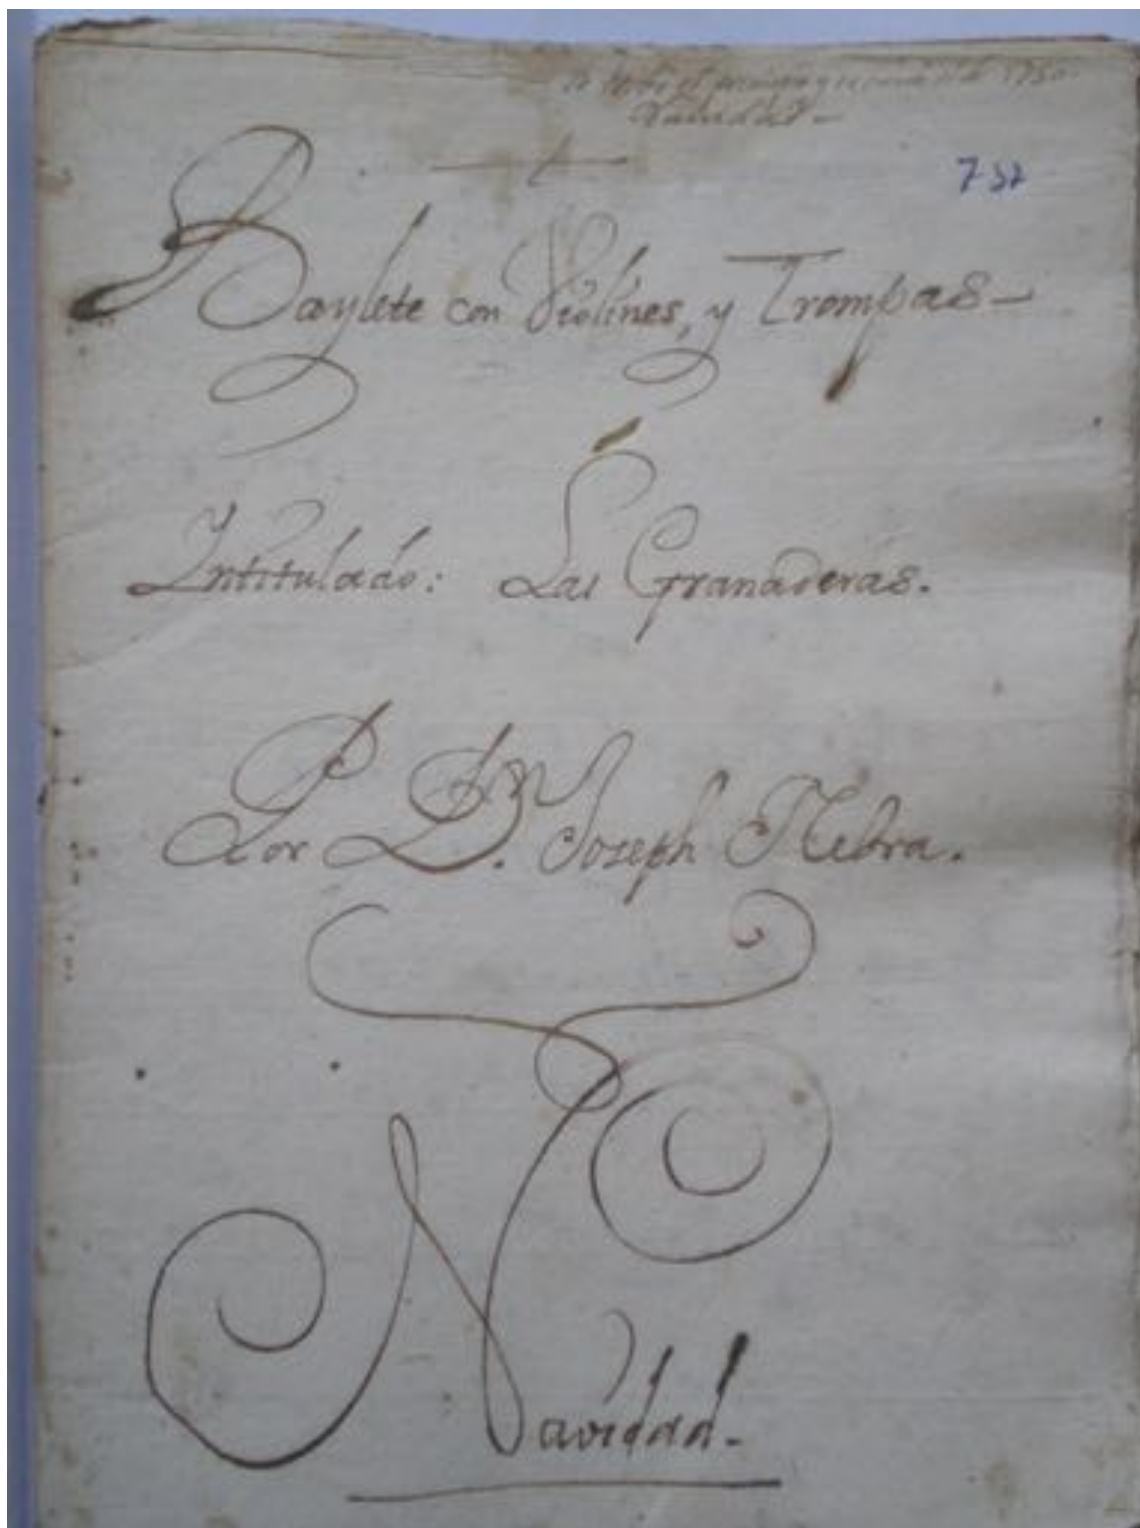 1750
Navidad -
7-32
Baylete con Violines, y Trompas -
Intitulado: Las Granaderas.
Por D.n Joseph Nebra.
Navidad.